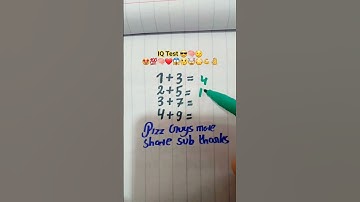 IQ Test 😎🧠😉
1+3=4
2+5=1
3+7=
4+9=
Pizz Guys more
share sub thanks